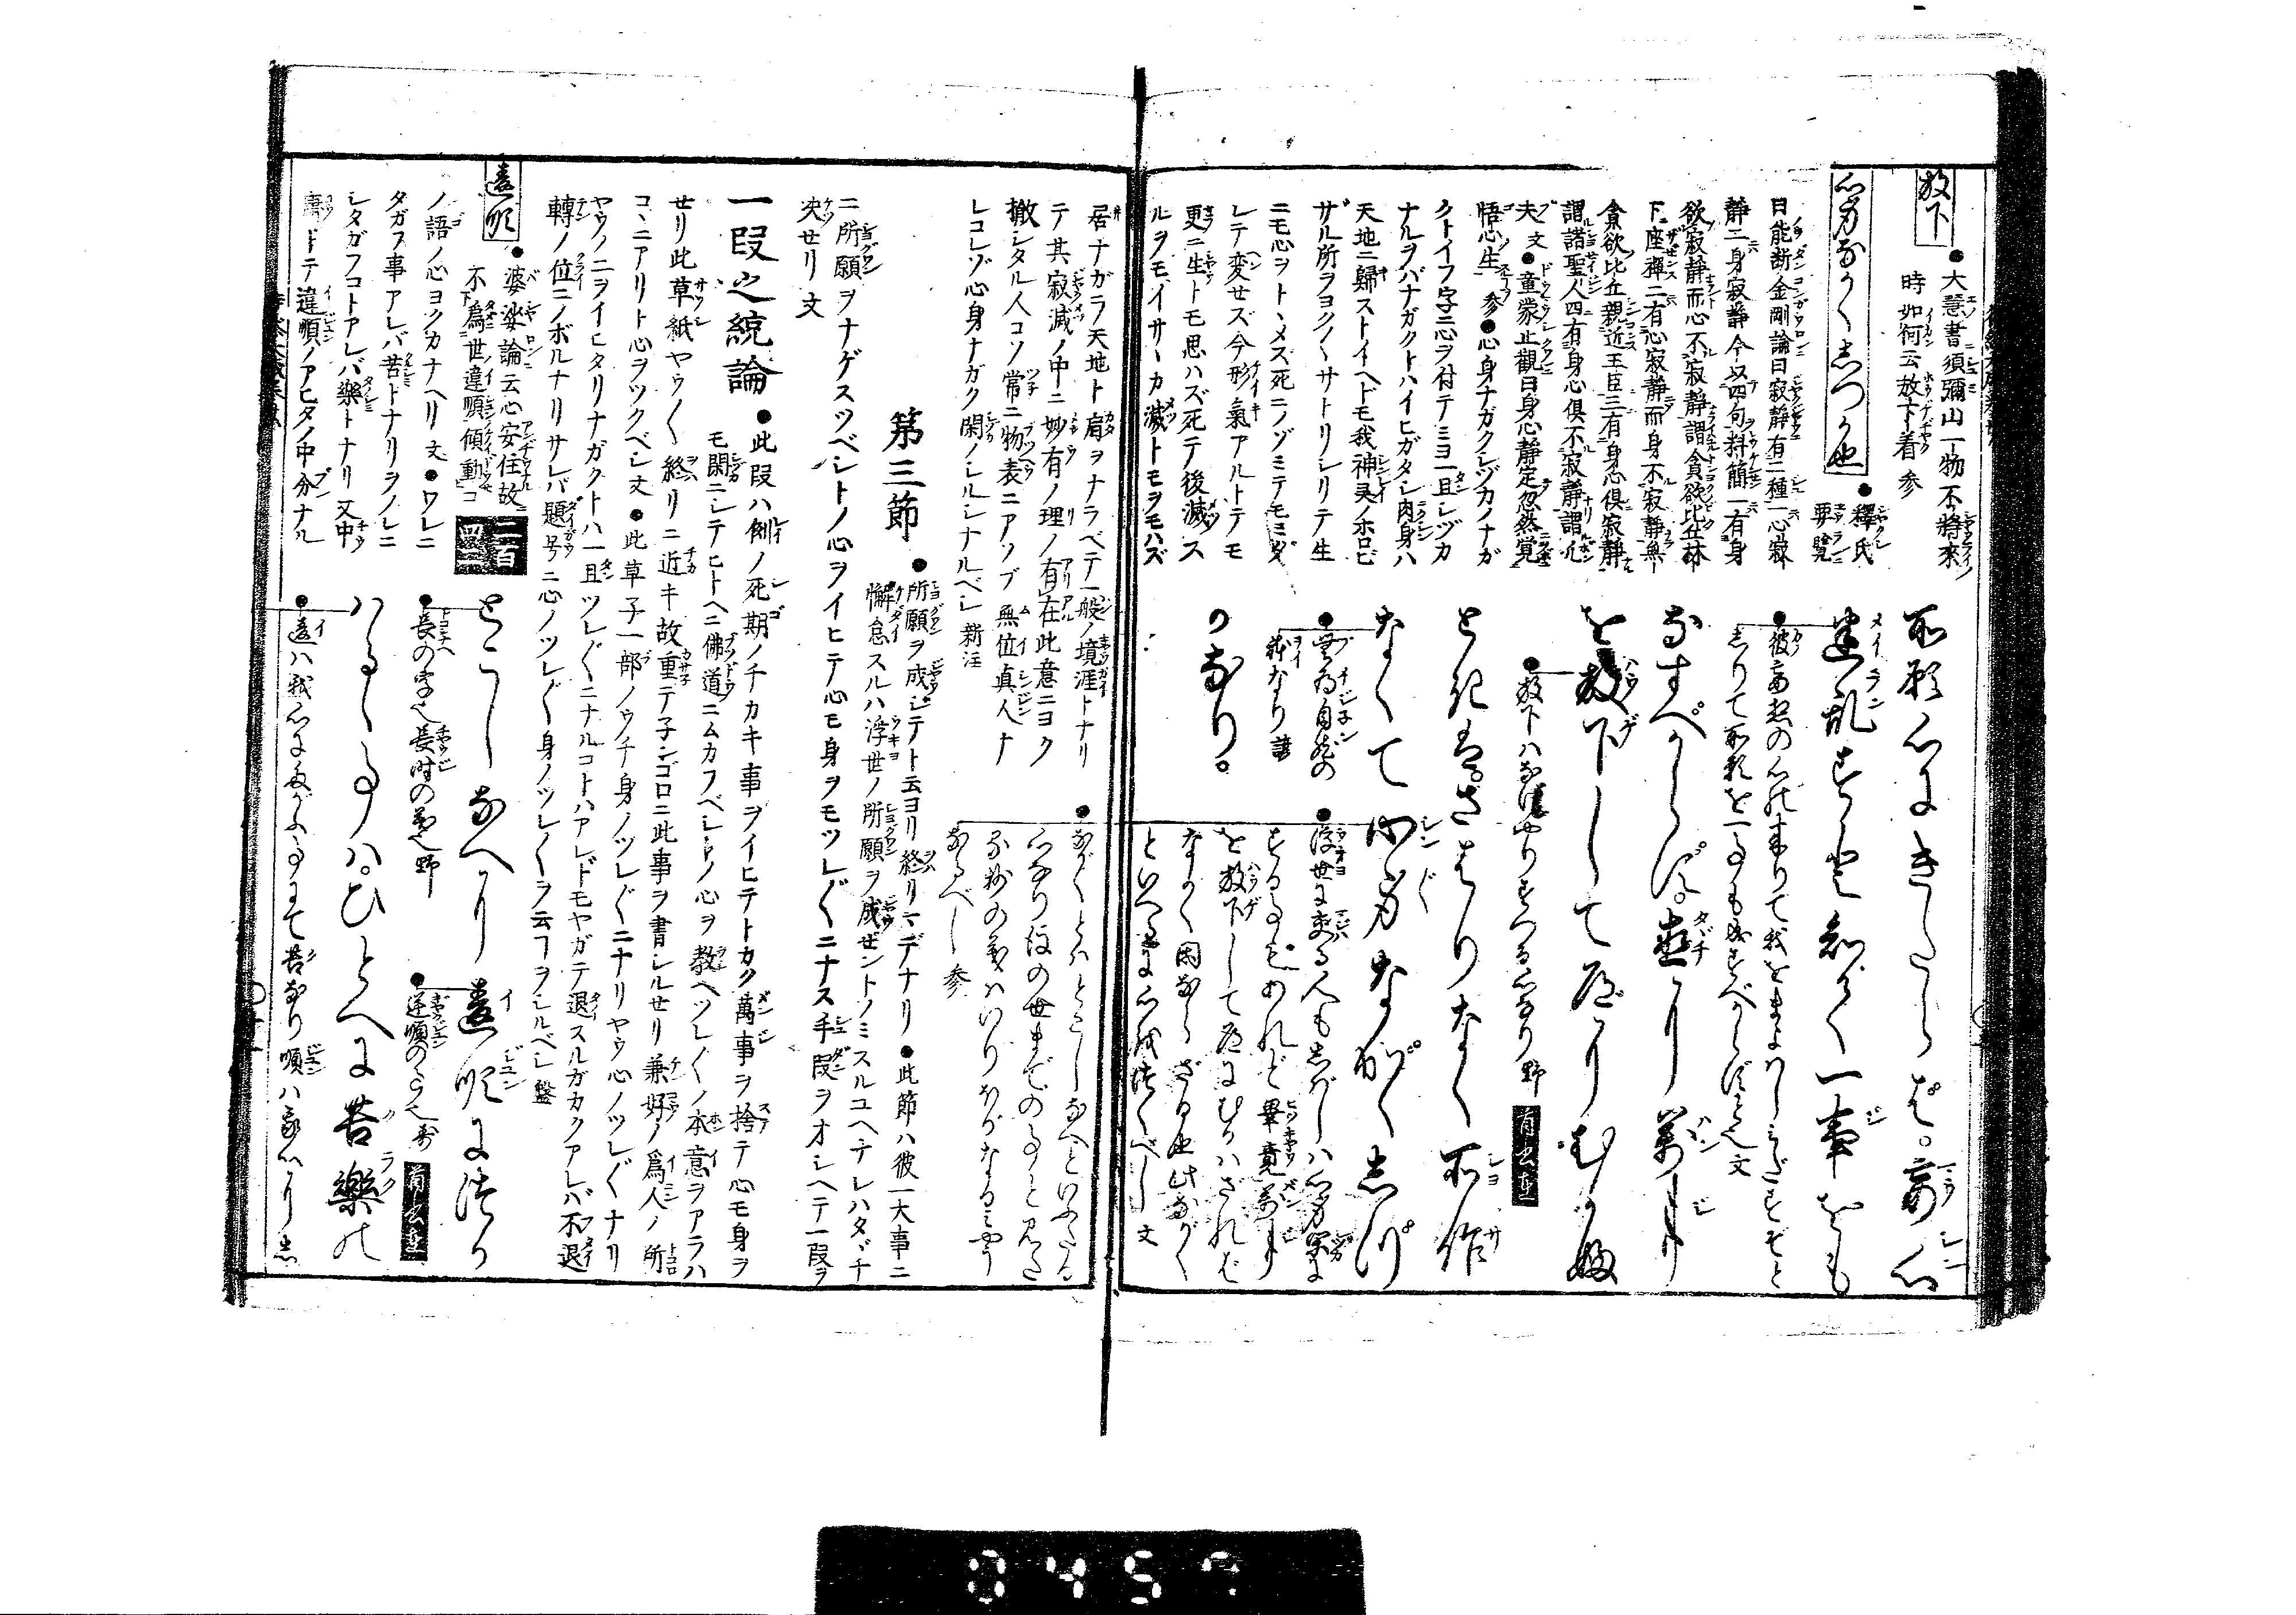 放下
●大慧書須彌山一物不將來
時如何云放下着 参
心身ながくしづか也
●釋氏
要覽
曰能断金剛論曰寂静有二種一心寂
静二身寂静今以四句料簡一有身
欲寂静而心不寂静謂貪欲比丘林
下座禪二有心寂静而身不寂静無
貪欲比丘親近王臣三有身心俱寂静
謂諸聖人四有身心俱不寂静謂凡
夫文●童蒙止觀曰身心静定忽然覚
悟心生 参●心身ナガクシヅカノナガ
クトイフ字ニ心ヲ付テミヨ一旦シヅカ
ナルヲバナガクトハイヒガタシ肉身ハ
天地ニ歸ストイヘドモ我神灵ノホロビ
ザル所ヲヨク〱サトリシリテ生
ニモ心ヲトヽメス死ニノゾミテモミダ
レテ変セズ今形氣アルトテモ
更ニ生トモ思ハズ死テ後滅ス
ルヲモイサヽカ滅トモヲモハズ
所願心にきたらば。妄心
迷乱すと知て一事をも
●彼妄想の心の来りて我をまよはしみだすぞと
しりて所願を一事も成すべからずと也文
なすべからず。直に万事
を放下して道にむかふ
●放下ハなげやりすつる心なり 野
とき。さはりなく所作
なくて心身ながくしづ
●無為自然の
義なり 諺
●浮世に交る人もしばしハ心身静に
することあれど畢竟萬事
を放下して道にむかハざれば
ながく閑ならざる也此ながく
といへるに心を付べし 文
かなり。
居ナガラ天地ト肩ヲナラベテ一般ノ境涯トナリ
テ其寂滅ノ中ニ妙有ノ理ノ有在此意ニヨク
撤シタル人コソ常ニ物表ニアソブ無位眞人ナ
レコレゾ心身ナガク閑ノシルシナルベシ 新注
●ながくとハとこしなへといふたる
心なり後の世までの事と見た
る抄の義ハいりほがなるみやう
なるべし 参
第三節
●所願ヲ成シテト云ヨリ終リマデナリ●此節ハ彼一大事ニ
懈怠スルハ浮世ノ所願ヲ成ゼントノミスルユヘテレハタヾチ
ニ所願ヲナゲスツベシトノ心ヲイヒテ心モ身ヲモツレ〲ニナス手段ヲオシヘテ一段ヲ
决せリ 文
一段之統論
●此段ハ例ノ死期ノチカキ事ヲイヒテトカク萬事ヲ捨テ心モ身ヲ
モ閑ニシテヒトヘニ佛道ニムカフベシトノ心ヲ教ヘツレ〲ノ本意ヲアラハ
せリ此草紙ヤウ〱終リニ近キ故重テ子ンゴロニ此事ヲ書シルせリ兼好ノ爲人ノ所
コヽニアリト心ヲツクベシ文●此草子一部ノウチ身ノツレ〲ニナリヤウ心ノツレ〲ナリ
ヤウノニヲイヒタリナガクトハ一旦ツレ〲ニナルコトハアレドモヤガテ退スルガカクアレバ不退
轉ノ位ニノボルナリサレバ題号ニ心ノツレ〲身ノツレ〱ヲ云フヲシルベシ 盤
違順
●婆娑論云心安住故
不爲世違順傾動コ
ノ語ノ心ヨクカナヘリ 文●ワレニ
タガフ事アレバ苦トナリヲノレニ
シタガフコトアレバ樂トナリ又中
庸トテ違順ノアヒダノ中分ナル
二百四十二
とこしなへに違順につか
●長の字也長時の義也野
●逆順の心也寿
はるゝ事ハ。ひとへに苦樂の
●違ハ我心にたがふ事にて苦なり順ハ我心にし